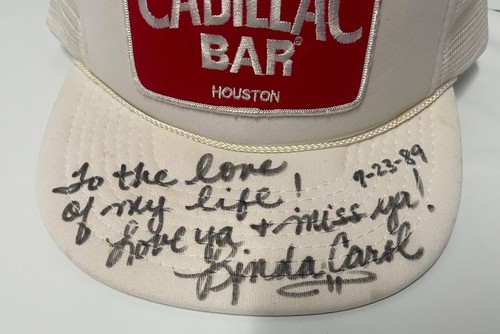 CADILLAC
BAR®
HOUSTON
To the love
of my life!
9-23-89
Love ya + miss ya!
Linda Carol